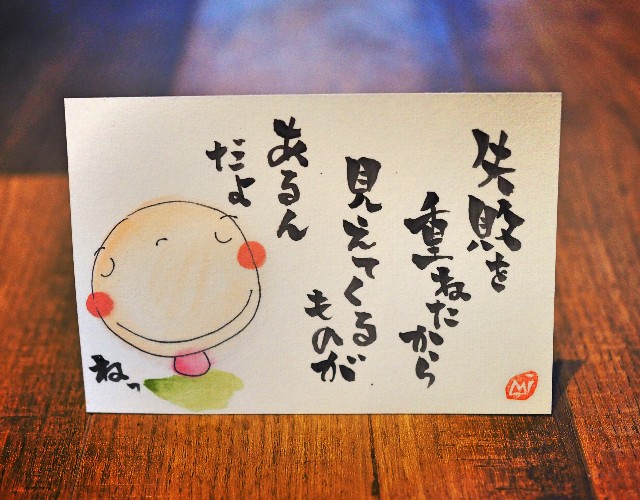 失敗を
重ねたから
見えてくる
ものが
あるん
だよ
ねっ